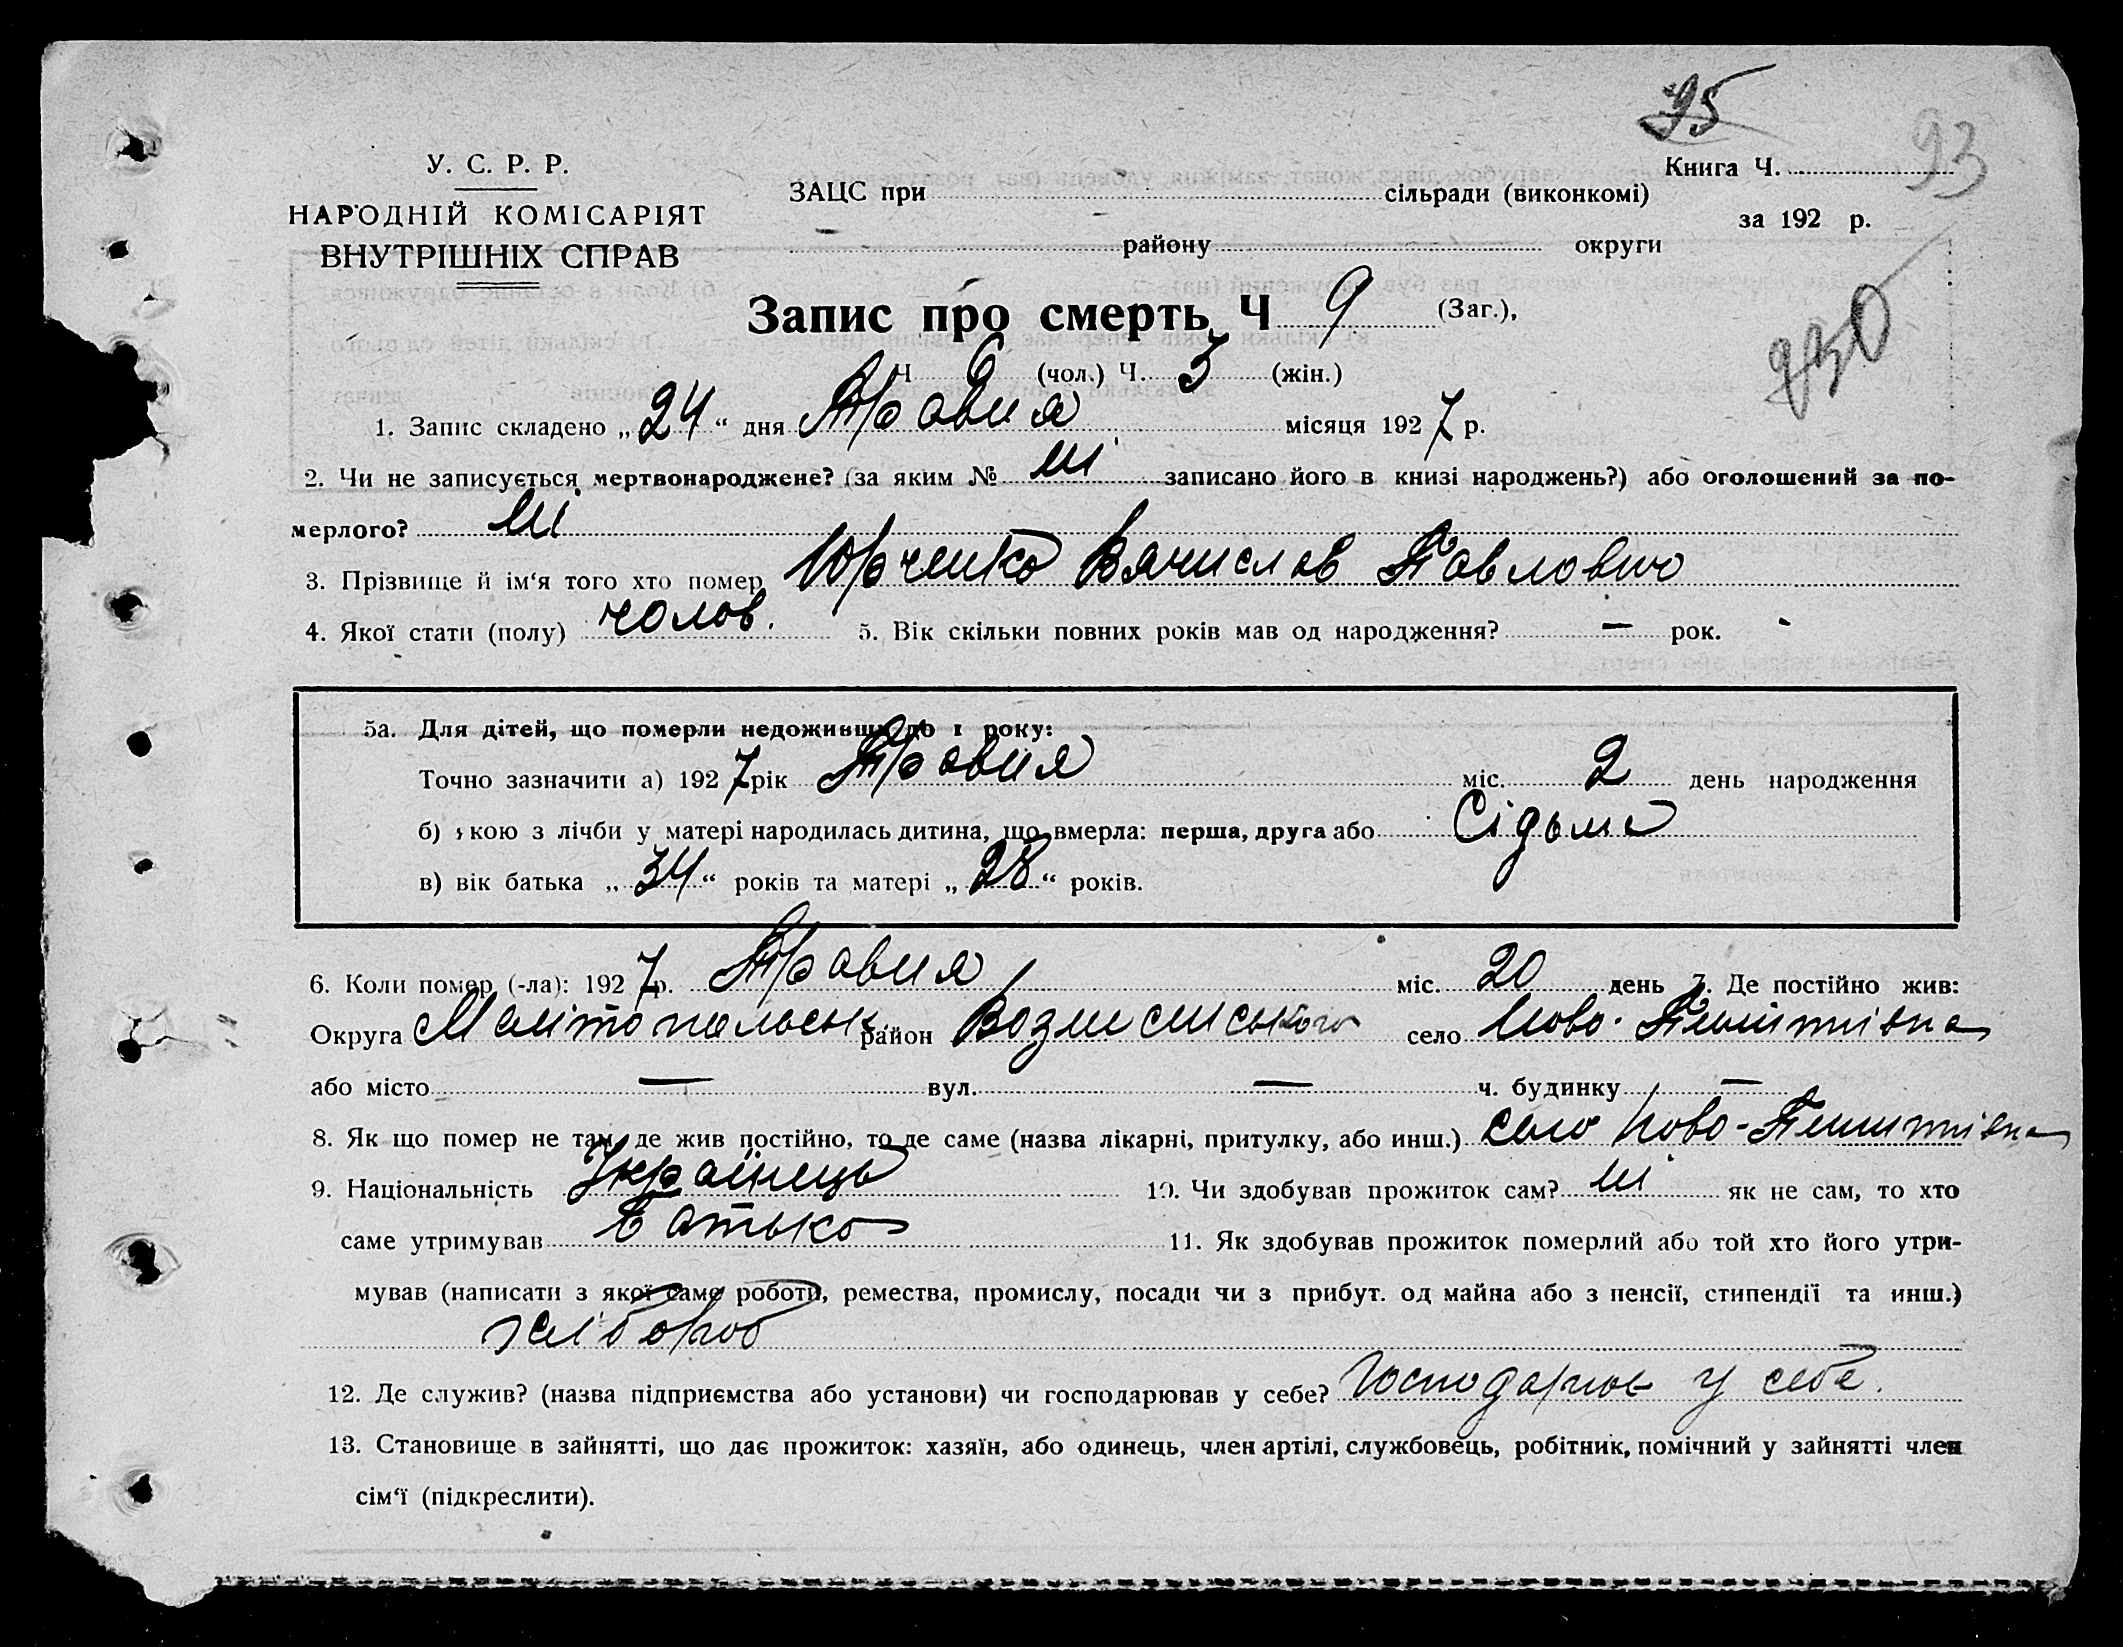 95
93
У. С. Р. Р.
НАРОДНІЙ КОМІСАРІЯТ
ВНУТРІШНІХ СПРАВ
Книга Ч.
ЗАЦС при сільради (виконкомі)
за 192 р.
району округи
Запис про смерть Ч 9 (Заг.),
930
Ч 6 (чол.) Ч. 3 (жін.)
1. Запис складено „24“ дня Травня місяця 1927 р.
2. Чи не записується мертвонароджене? (за яким № ні записано його в книзі народжень?) або оголошений за по-
мерлого? ні
3. Прізвище й ім‘я того хто помер Юрченко Вячислав Павлович
4. Якої стати (полу) чолов. 5. Вік скільки повних років мав од народження? — рок.
5а. Для дітей, що померли недоживши до 1 року:
Точно зазначити а) 1927 рік Травня міс. 2 день народження
б) якою з лічби у матері народилась дитина, що вмерла: перша, друга або Сідьма
в) вік батька „34“ років та матері „28“ років.
6. Коли помер (-ла): 1927 р. Травня міс. 20 день 7. Де постійно жив:
Округа Мелітопольськ. район Вознесенського село Ново-
або місто — вул. — ч. будинку —
8. Як що помер не там, де жив постійно, то де саме (назва лікарні, притулку, або инш.) село Ново-
9. Національність Українець 10. Чи здобував прожиток сам? ні як не сам, то хто
саме утримував Батько 11. Як здобував прожиток померлий або той хто його утри-
мував (написати з якої саме роботи, ремества, промислу, посади чи з прибут. од майна або з пенсії, стипендії та инш.)
хлібороб
12. Де служив? (назва підприємства або установи) чи господарював у себе? Господарює у себе.
13. Становище в зайнятті, що дає прожиток: хазяїн, або одинець, член артілі, службовець, робітник, помічний у зайнятті член
сім‘ї (підкреслити).